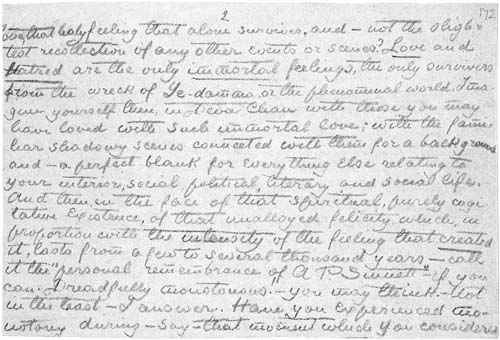 2
that holy feeling that alone survives, and – not the sligh=
test recollection of any other events or scenes. Love and
Hatred are the only immortal feelings, the only survivors
from the wreck of Ye-damma, or the phenomenal world. Ima=
gine yourself then, in Deva Chan with those you may
have loved with such immortal love; with the fami=
liar shadowy scenes connected with them for a background
and – a perfect blank for everything else relating to
your interior, social, political, literary and social life.
And then, in the face of that spiritual, purely cogi
tative existence, of that unalloyed felicity which, in
proportion with the intensity of the feeling that created
it, lasts from a few to several thousand years – call
it the "personal remembrance of A P Sinnett" – if you
can. Dreadfully monotonous! – you may think. – Not
in the least – I answer. Have you experienced mo=
notony during – say – that moment which you considered